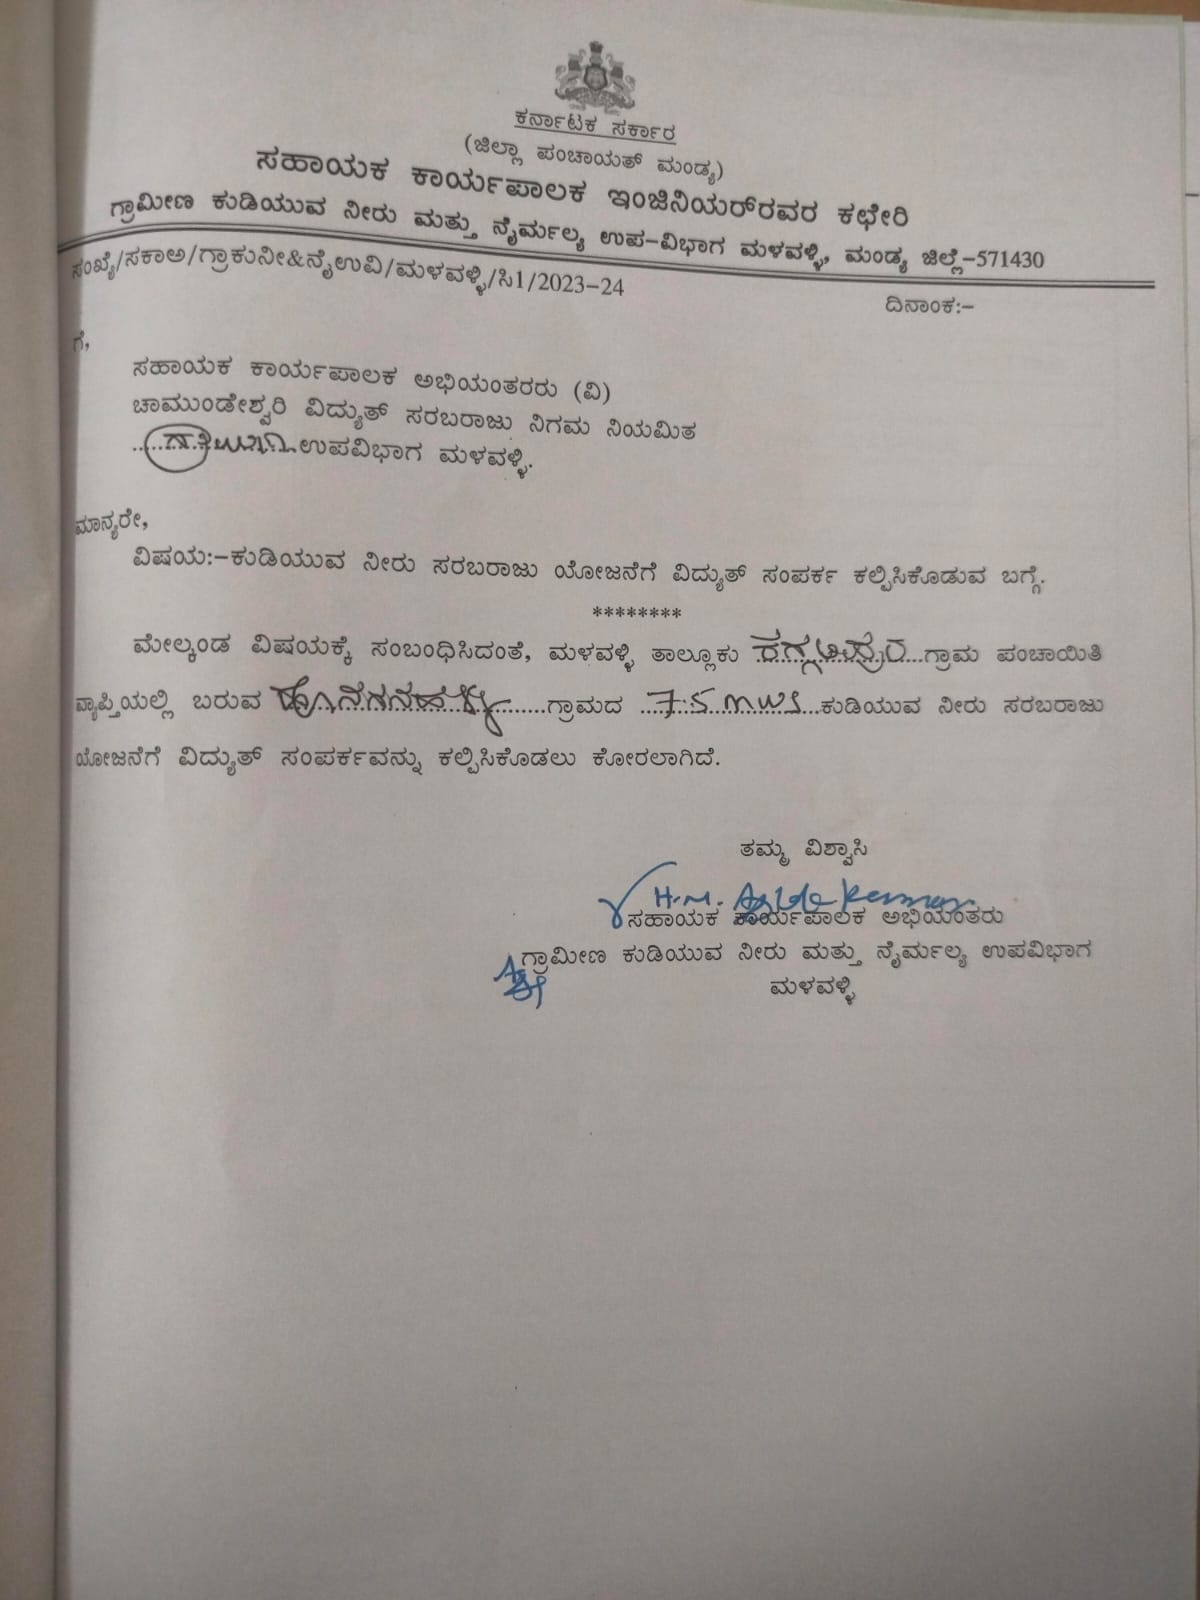 ಕರ್ನಾಟಕ ಸರ್ಕಾರ
(ಜಿಲ್ಲಾ ಪಂಚಾಯತ್ ಮಂಡ್ಯ)
ಸಹಾಯಕ ಕಾರ್ಯಪಾಲಕ ಇಂಜಿನಿಯರ್‌ರವರ ಕಛೇರಿ
ಗ್ರಾಮೀಣ ಕುಡಿಯುವ ನೀರು ಮತ್ತು ನೈರ್ಮಲ್ಯ ಉಪ-ವಿಭಾಗ ಮಳವಳ್ಳಿ, ಮಂಡ್ಯ ಜಿಲ್ಲೆ-571430
ಸಂಖ್ಯೆ/ಸಕಾಅ/ಗ್ರಾಕುನೀ&ನೈಉವಿ/ಮಳವಳ್ಳಿ/ಸಿ1/2023-24
ದಿನಾಂಕ:-
ಗೆ,
ಸಹಾಯಕ ಕಾರ್ಯಪಾಲಕ ಅಭಿಯಂತರರು (ವಿ)
ಚಾಮುಂಡೇಶ್ವರಿ ವಿದ್ಯುತ್ ಸರಬರಾಜು ನಿಗಮ ನಿಯಮಿತ
ಉಪವಿಭಾಗ ಮಳವಳ್ಳಿ.
ಮಾನ್ಯರೇ,
ವಿಷಯ:-ಕುಡಿಯುವ ನೀರು ಸರಬರಾಜು ಯೋಜನೆಗೆ ವಿದ್ಯುತ್ ಸಂಪರ್ಕ ಕಲ್ಪಿಸಿಕೊಡುವ ಬಗ್ಗೆ.
********
ಮೇಲ್ಕಂಡ ವಿಷಯಕ್ಕೆ ಸಂಬಂಧಿಸಿದಂತೆ, ಮಳವಳ್ಳಿ ತಾಲ್ಲೂಕು ಗ್ರಾಮ ಪಂಚಾಯಿತಿ
ವ್ಯಾಪ್ತಿಯಲ್ಲಿ ಬರುವ ಹೊನಗನಹಳ್ಳಿ ಗ್ರಾಮದ ಕುಡಿಯುವ ನೀರು ಸರಬರಾಜು
ಯೋಜನೆಗೆ ವಿದ್ಯುತ್ ಸಂಪರ್ಕವನ್ನು ಕಲ್ಪಿಸಿಕೊಡಲು ಕೋರಲಾಗಿದೆ.
ತಮ್ಮ ವಿಶ್ವಾಸಿ
H.M.
ಸಹಾಯಕ ಕಾರ್ಯಪಾಲಕ ಅಭಿಯಂತರು
ಗ್ರಾಮೀಣ ಕುಡಿಯುವ ನೀರು ಮತ್ತು ನೈರ್ಮಲ್ಯ ಉಪವಿಭಾಗ
ಮಳವಳ್ಳಿ